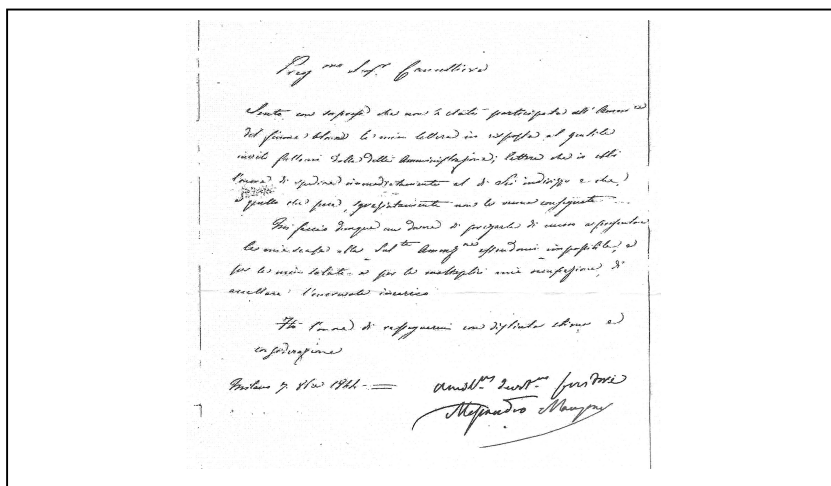 Preg.mo Sig.r Cancelliere
Sento con sorpresa che non è stata partecipata all'Amm.ne
del Comune la mia lettera in risposta al gentile
invito fattomi dalla detta Amministrazione; lettera che io ebbi
l'onore di spedire immediatamente al di Lei indirizzo e che,
a quello che pare, sgraziatamente non le venne consegnata.
Mi faccio dunque un dovere di pregarla di presentare
le mie scuse alla Sud.ta Amm.ne essendomi impossibile, e
per la mia salute e per le molteplici mie occupazioni, di
accettare l'onorevole incarico
Ho l'onore di rassegnarmi con distinta stima ed
considerazione
Milano 7. 1844
Umil.mo Devot.mo Servitore
Alessandro Manzoni